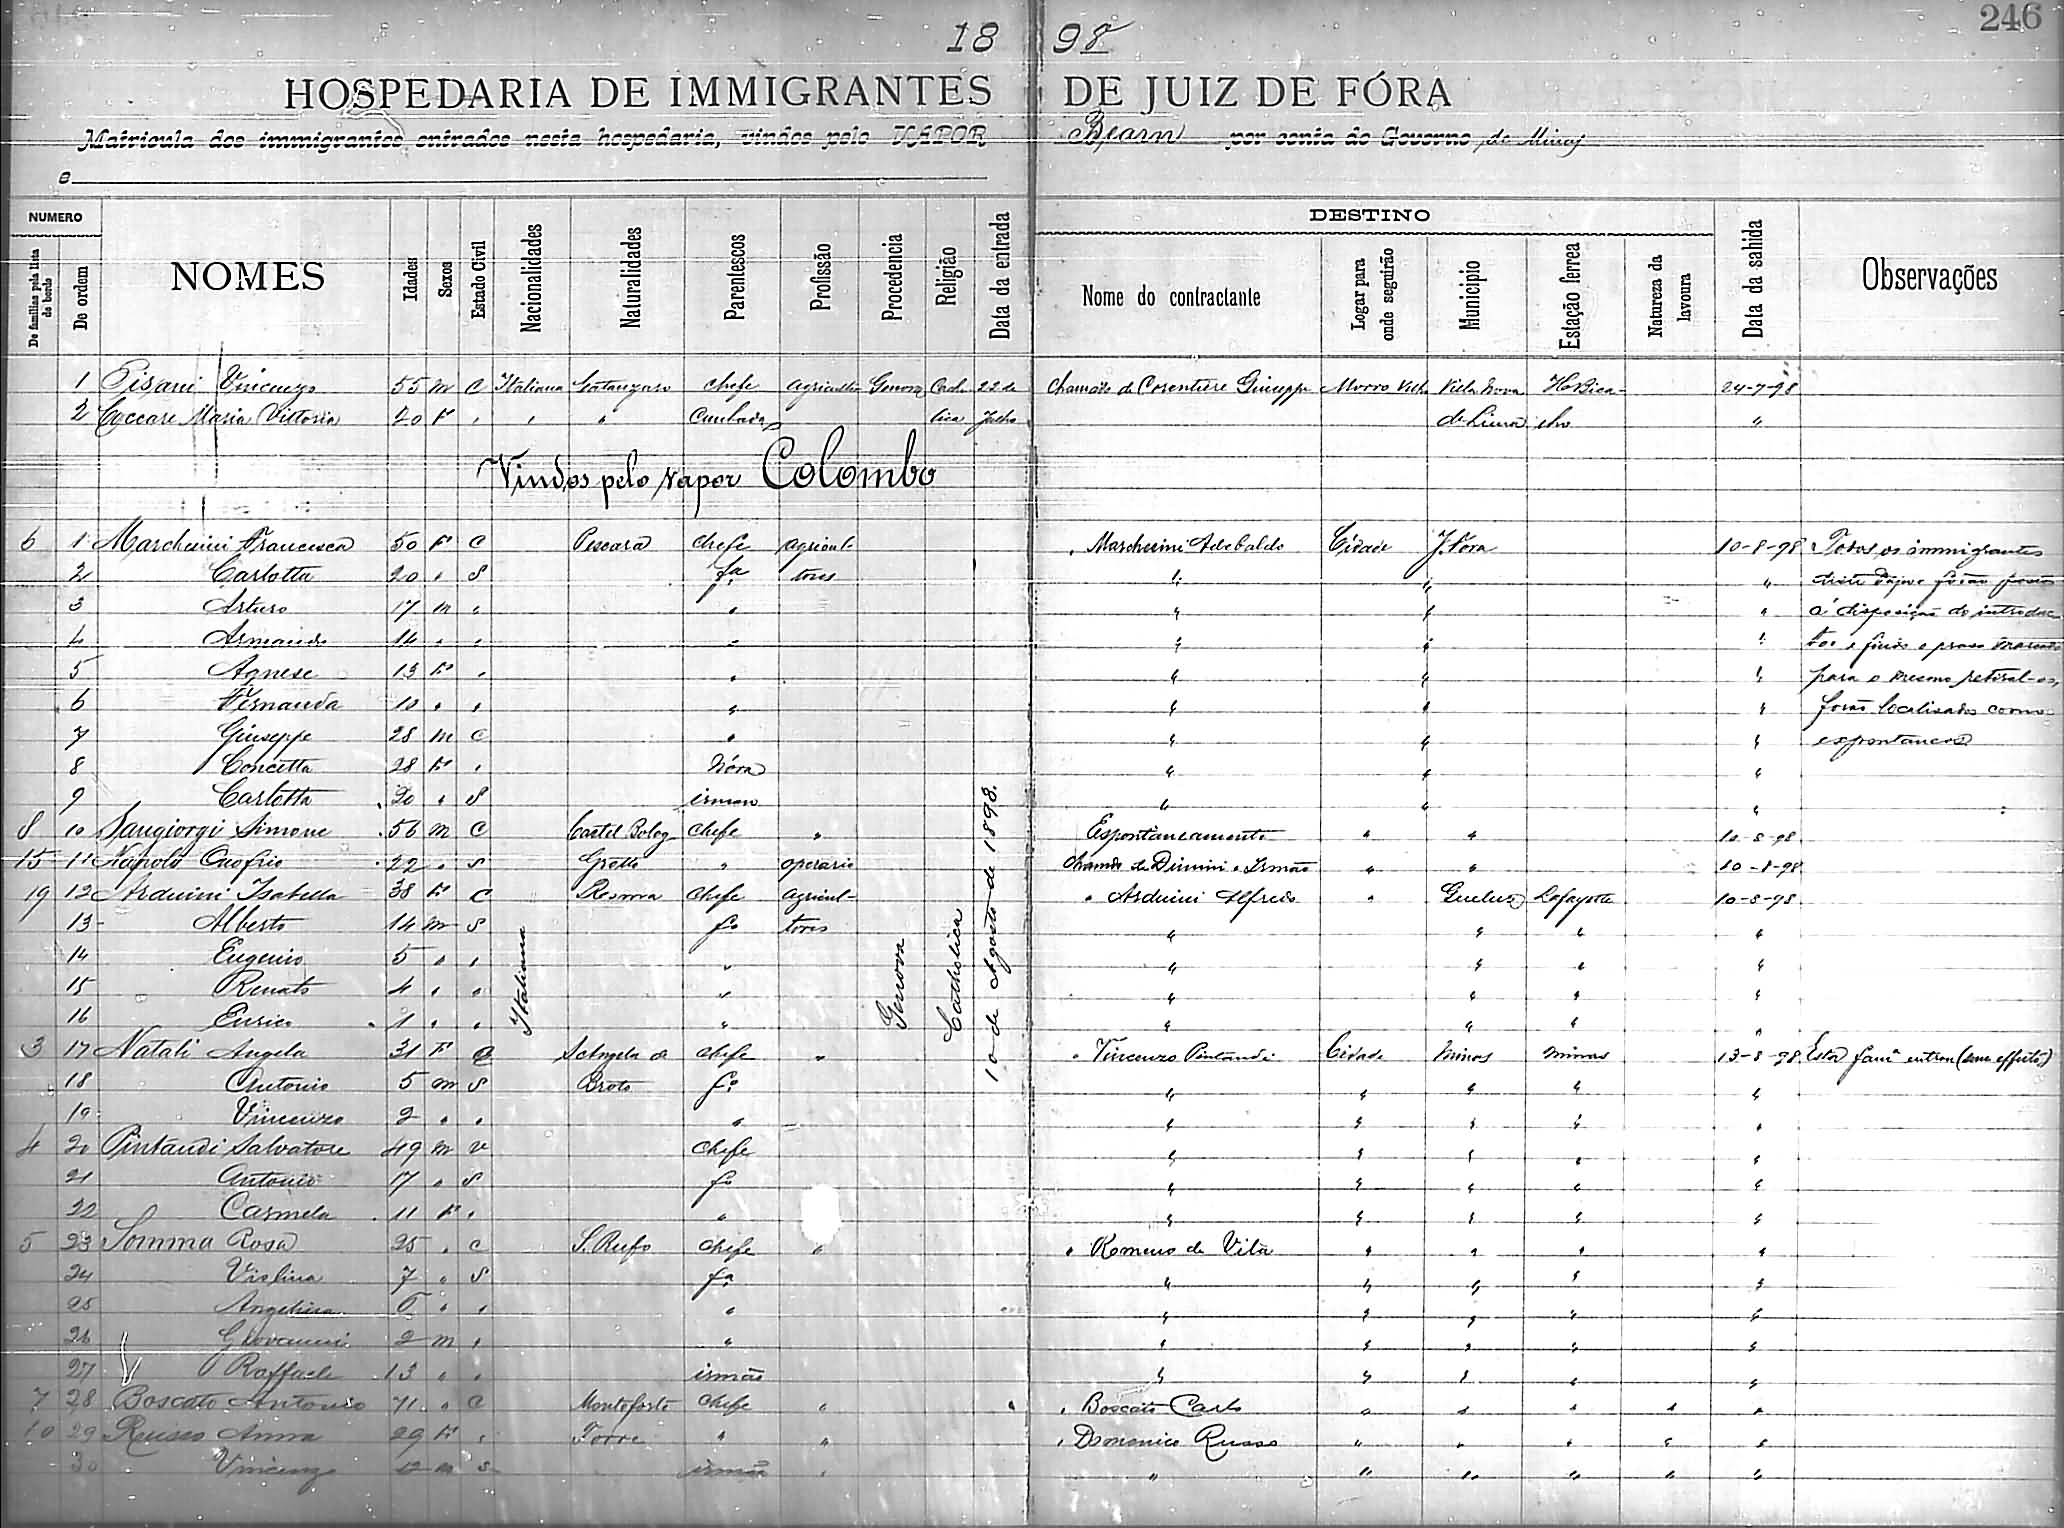 246
18 98
HOSPEDARIA DE IMMIGRANTES DE JUIZ DE FÓRA
Matricula dos immigrantes entrados nesta hospedaria, vindos pelo VAPOR Bearn por conta do Governo de Minas
e
NUMERO DESTINO
De familias pela lista de bordo De ordem NOMES Idades Sexos Estado Civil Nacionalidades Naturalidades Parentescos Profissão Procedencia Religião Data da entrada Nome do contractante Logar para onde seguirão Municipio Estação ferrea Natureza da lavoura Data da sahida Observações
1 Pisani Vincenzo 55 m C Italiana Catanzaro chefe Genova Catho 22 de chamado de Giuseppe Morro Velho Villa Nova H. Bica- 24-7-98
2 Maria Vittoria 20 F , , " Cunhada lica Julho de Lima lho "
Vindos pelo vapor Colombo
6 1 Marchesini Francesca 50 F C Pescara chefe agricul- , Marchesini Adebaldo Cidade J. Fora 10-8-98 Todos os immigrantes
2 Carlotta 20 " S fa tores " " " forão postos
3 Arturo 17 m " " " " " á disposição do introduc
4 Armando 14 " " " " " " tor e findo o praso marcado
5 Agnese 13 F " " " " " para o mesmo retiral-os,
6 Fernanda 10 " " " " " " forão localisados como
7 Giuseppe 28 m C " " " " espontaneos
8 Concetta 28 F " Nóra " " "
9 Carlotta 20 " S irman " " "
8 10 Sangiorgi Simone 56 m C Castel Bolog chefe " Espontaneamente " " 10-8-98
15 11 Napolo Onofrio 22 " S Grotte " operario chamdo de Dimini e Irmão " " 10-8-98
19 12 Arduini Isabella 38 F C chefe agricul- " Arduini Alfredo " Queluz Lafayette 10-8-98
13 Alberto 14 m S fo tores " " " "
14 Eugenio 5 " " " " " " "
15 Renato 4 " " " " " " "
16 Enrico 1 " " " " " " "
Italiana Genova Catholica 10 de Agosto de 1898.
3 17 Natali Angela 31 F C S. Angelo de chefe " " Vincenzo Pintaudi Cidade Minas Minas 13-8-98 Esta fama entrou (sem effeito)
18 Antonio 5 m S Broto fo " " " " "
19 Vincenzo 2 " " " " " " " "
4 20 Pintaudi Salvatore 49 m v chefe " " " " "
21 Antonio 17 " S fo " " " " "
22 Carmela 11 F " " " " " " "
5 23 Somma Rosa 25 " C S. Rufo chefe " " Romeno de Vita " " " "
24 7 " S fa " " " " "
25 Angelina 6 " " " " " " " "
26 Giovanni 2 m " " " " " " "
27 Raffaele 13 " " irmão " " " " "
7 28 Boscato Antonio 71 " C Monteforte chefe " , Boscato Carlo " " " " "
10 29 Anna 29 F " Torre " " , Domenico Russo " " " " "
30 Vincenzo 12 m S irmão " " " " " " "